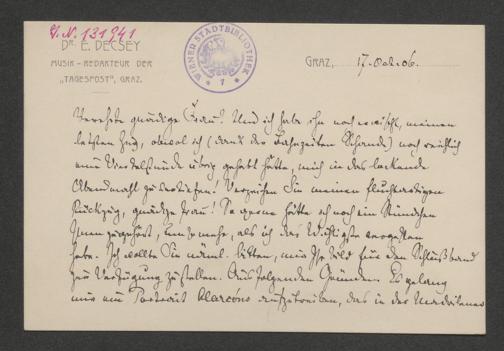 I. N. 131941
DR. E. DECSEY
MUSIK-REDAKTEUR DER
„TAGESPOST“, GRAZ.
WIENER STADTBIBLIOTHEK
* 1 *
GRAZ, 17. Oct. 06.
Verehrte gnädige Frau! Und ich habe ihn noch erwischt, meinen
letzten Zug, obwol ich (dank der Fahrzeiten Schande) noch reichlich
eine Viertelstunde übrig gehabt hätte, mich in das lockende
Abendmahl zu vertiefen! Verzeihen Sie meinen fluchtartigen
Rückzug, gnädige Frau! So gerne hätte ich noch ein Stündchen
Ihnen zugehört, umsomehr, als ich das Wichtigste vergessen
habe. Ich wollte Sie näml. bitten, mir Ihr Bild für den Schlußband
zur Verfügung zu stellen. Aus folgenden Gründen: Es gelang
mir ein Portrait Alarcóns aufzutreiben, das in der Madrilener